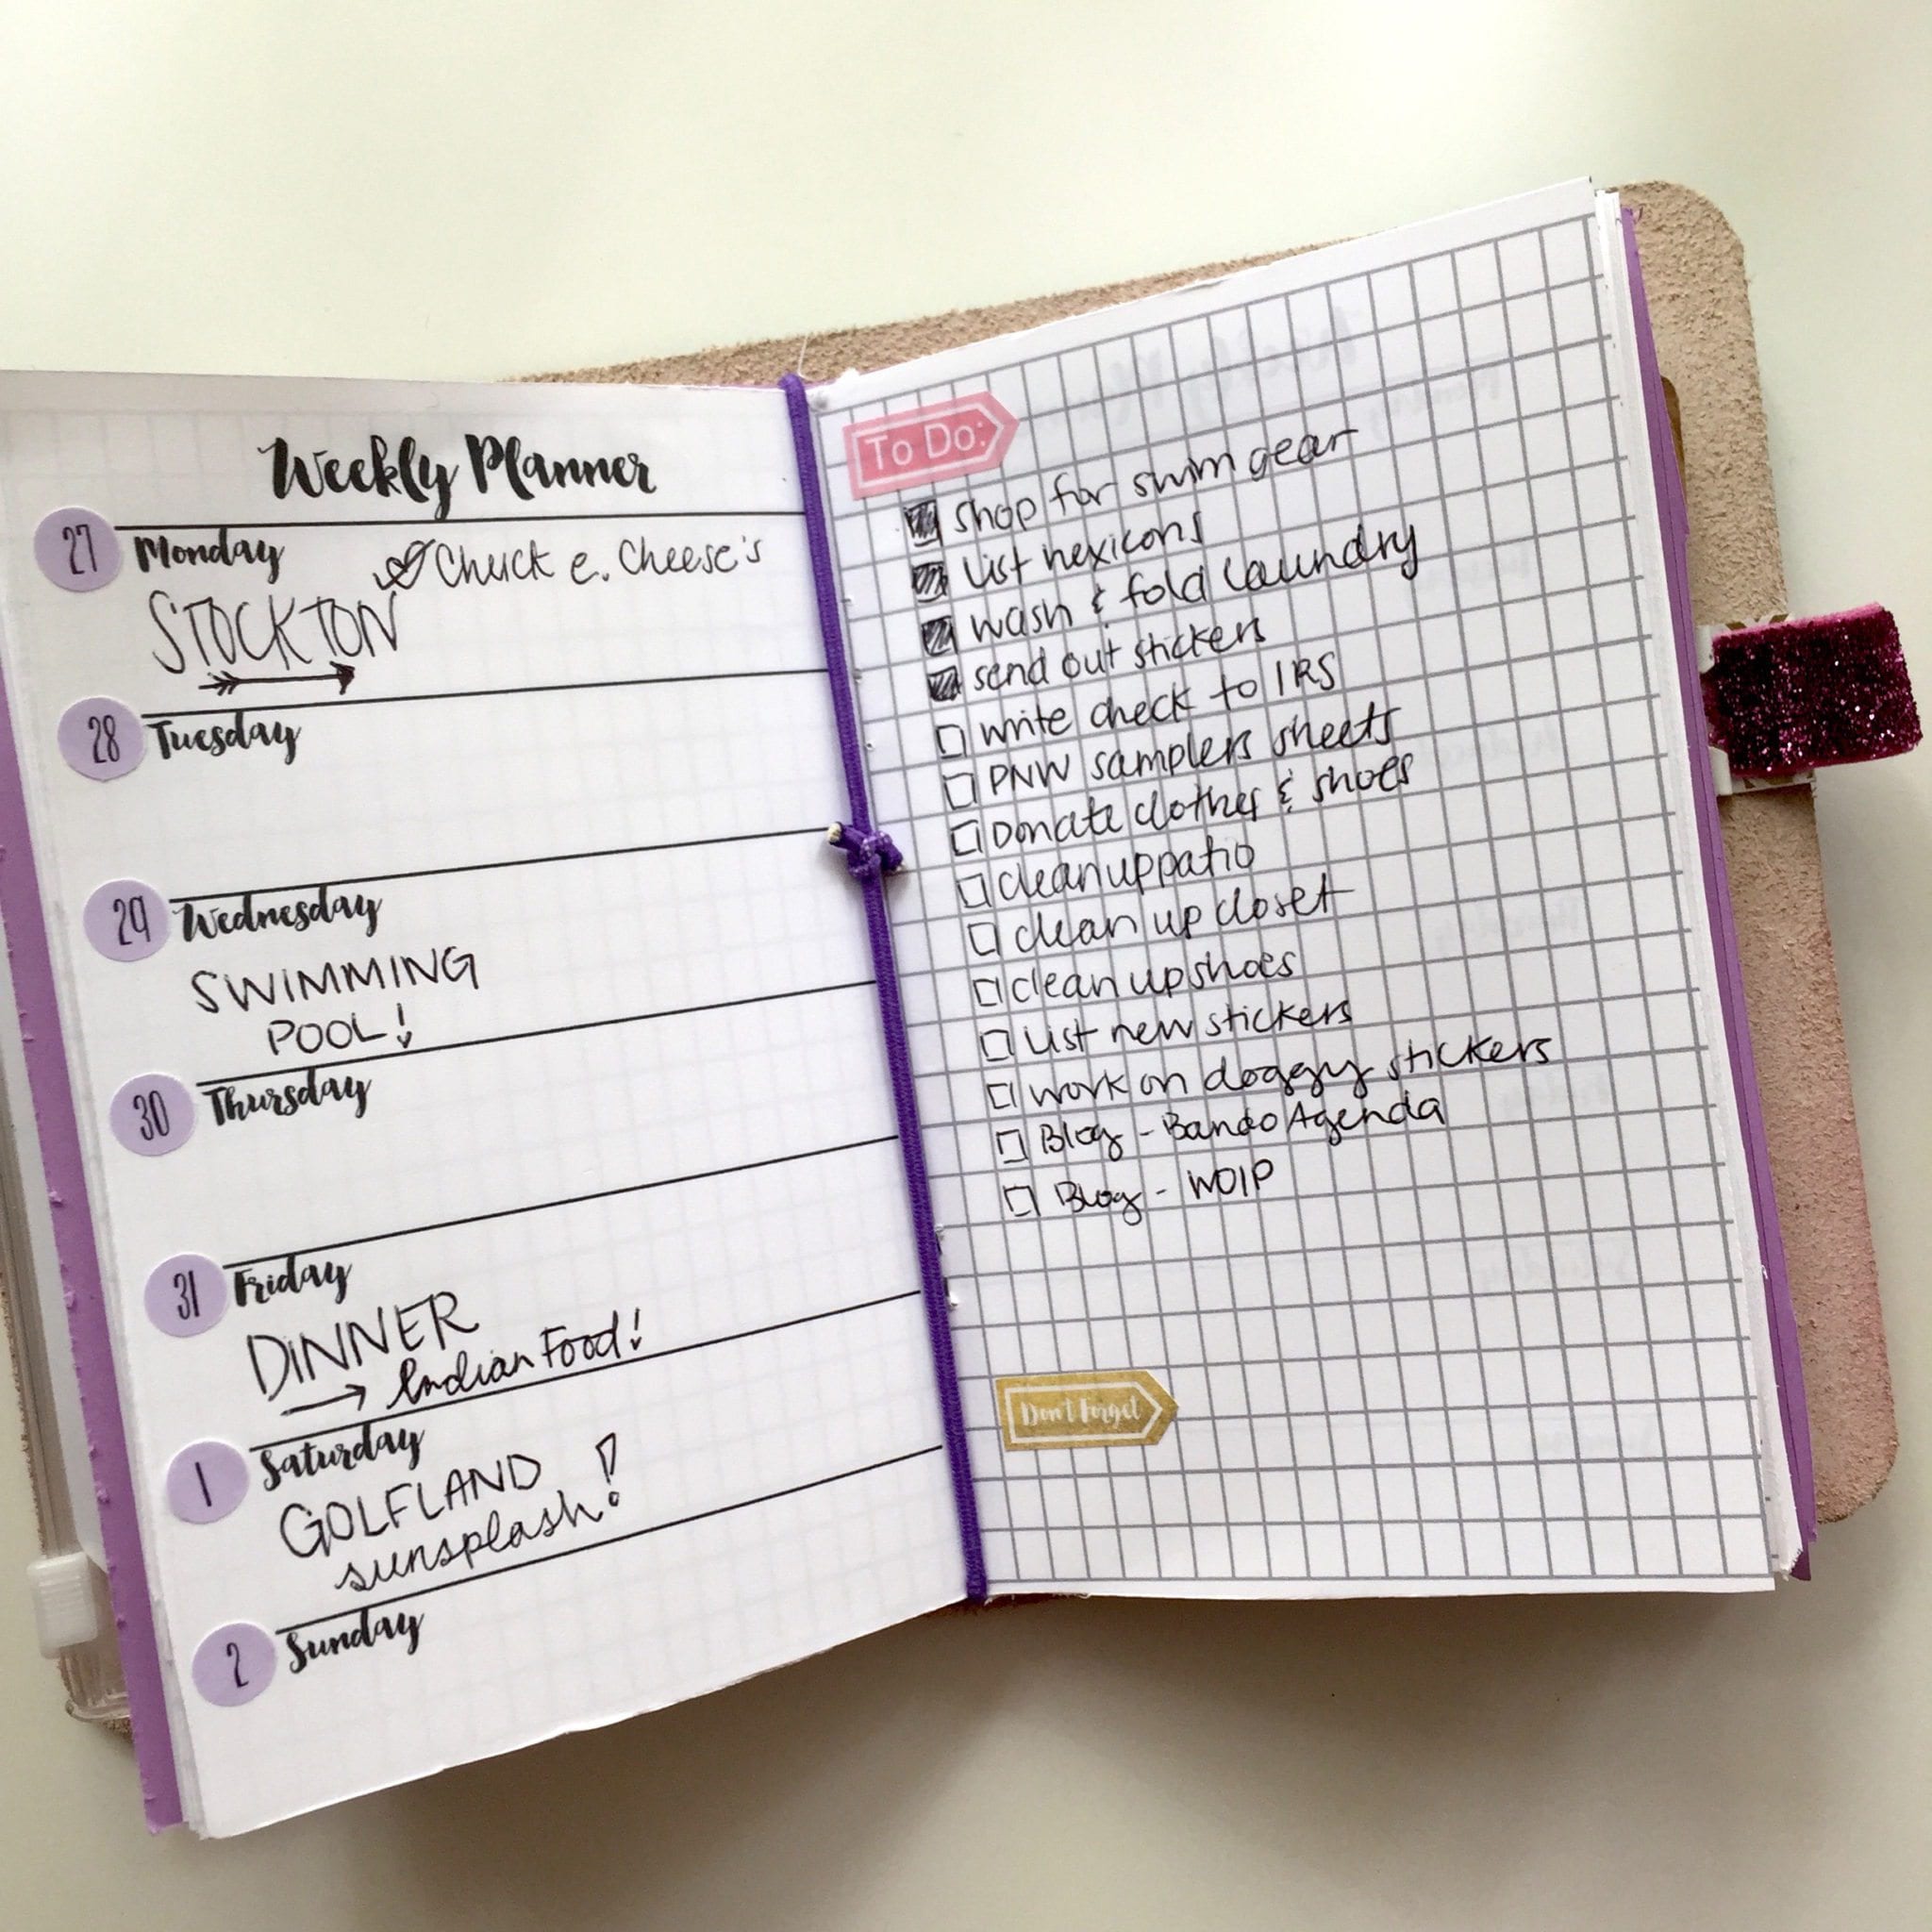 Weekly Planner
27 Monday
Chuck e. Cheese's
STOCKTON
28 Tuesday
29 Wednesday
SWIMMING
POOL!
30 Thursday
31 Friday
DINNER
→ Indian Food!
1 Saturday
GOLFLAND
sunsplash!
2 Sunday
To Do:
shop for swim gear
list hexicons
wash & fold laundry
send out stickers
write check to IRS
PNW samplers sheets
Donate clothes & shoes
clean up patio
clean up closet
clean up shoes
list new stickers
work on doggy stickers
Blog - Bando Agenda
Blog - WOIP
Don't Forget